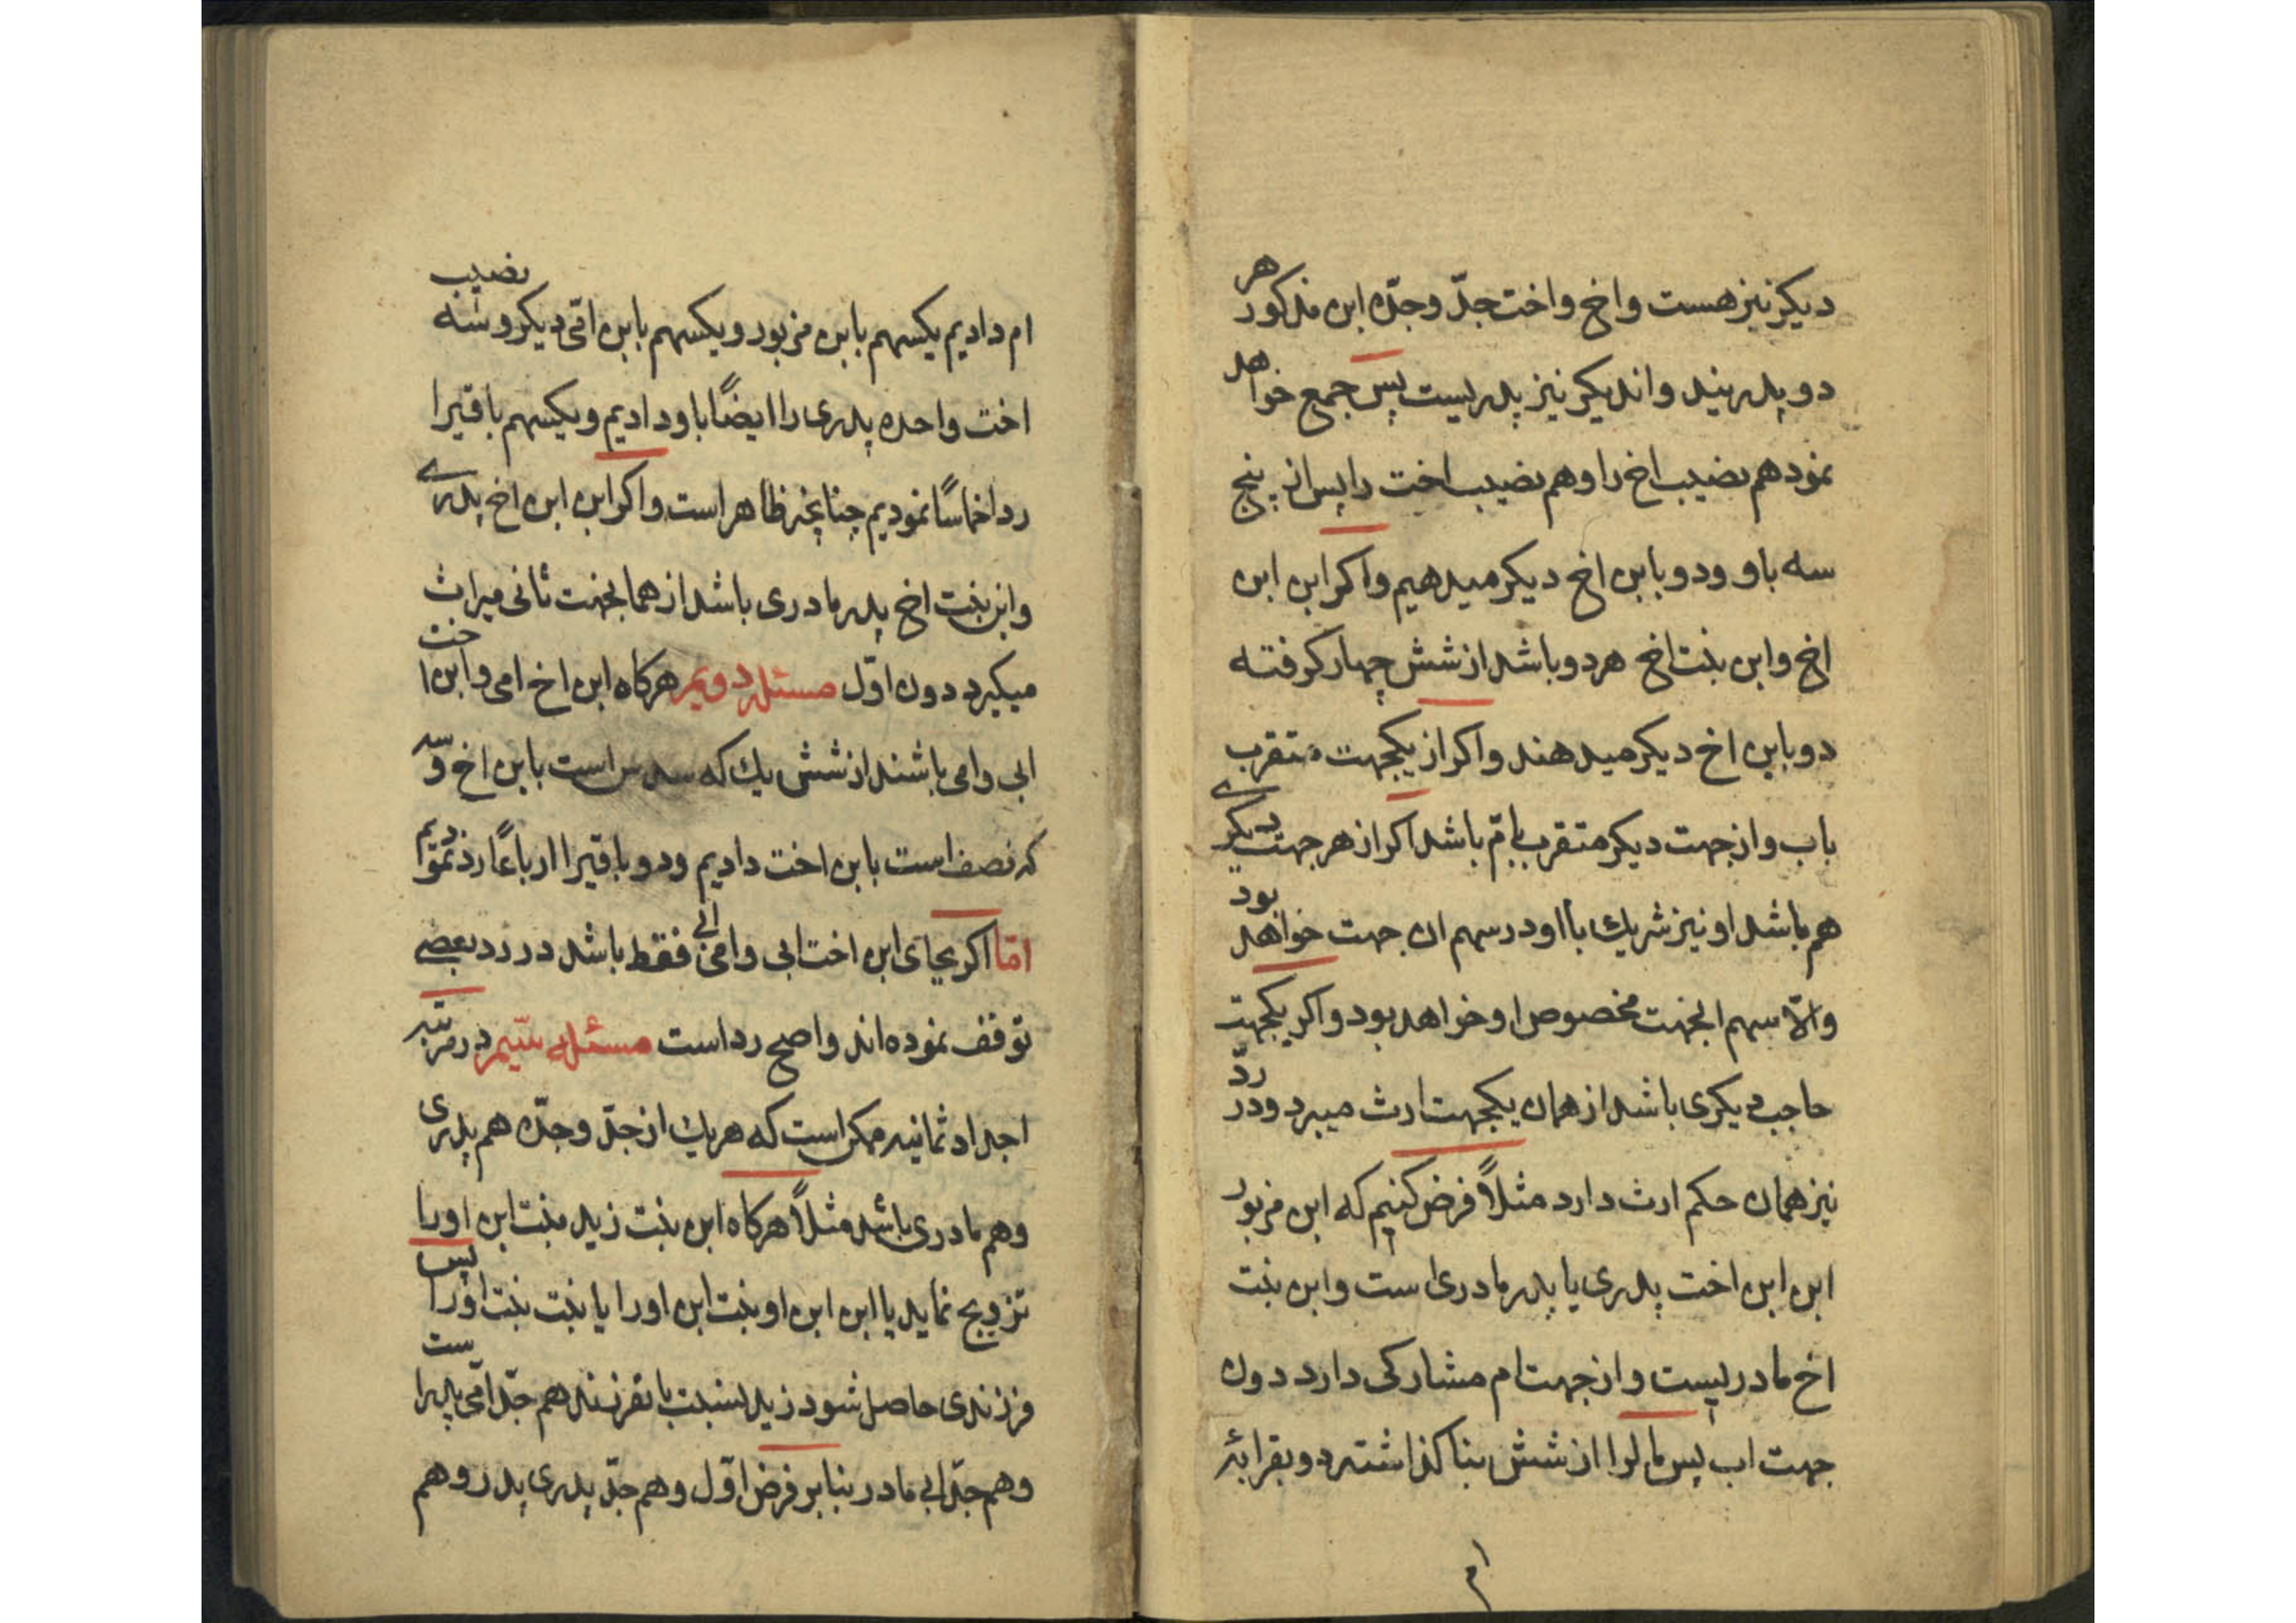 دیکر نیز هست واخ واخت جدّ وجدّه ابن مذکور هر
دو پدریند واندیکر نیز پدریست پس جمع خواهد
نمود هم نصیب اخ را وهم نصیب اخت را پس از پنج
سه باو ودو بابن اخ دیکر میدهیم واکر ابن ابن
اخ وابن بنت اخ هر دو باشد از شش چهار کرفته
دو بابن اخ دیکر میدهند واکر از یکجهت متقرب
باب واز جهت دیکر متقرب بامّ باشد اکر از هر جهت دیکری
هم باشد او نیز شریك با او در سهم ان جهت خواهد بود
والّا سهم انجهت مخصوص او خواهد بود واکر یکجهت
حاجب دیکری باشد از همان یکجهت ارث میبرد ودر ردّ
نیز همان حکم ارث دارد مثلاً فرض کنیم که ابن مزبور
ابن ابن اخت پدری یا پدر مادری است وابن بنت
اخ مادریست واز جهت ام مشارکی دارد دون
جهت اب پس مال را از شش بنا کذاشته دو بقرابة
ام
ام دادیم یکسهم بابن مزبور ویکسهم بابن امّی دیکر وسه نصیب
اخت واحده پدری را ایضاً باو دادیم ویکسهم باقیرا
رد اخماساً نمودیم چنانچه ظاهر است واکر ابن ابن اخ پدری
وابن بنت اخ پدر مادری باشد از همانجهت ثانی میراث
میکیرد دون اوّل مسئله دویم هرکاه ابن اخ امی وابن اخت
ابی وامی باشند از شش یك که سدس است بابن اخ وسه
که نصف است بابن اخت دادیم ودو باقیرا ارباعاً رد نمودیم
امّا اکر بجای ابن اخت ابی وامی ابی فقط باشد در رد بعضی
توقف نموده اند واصح رد است مسئله سیّم در مرتبه
اجداد ثمانیه ممکن است که هریك از جدّ وجدّه هم پدری
وهم مادری باشد مثلاً هرکاه ابن بنت زید بنت ابن اورا
تزویج نماید یا ابن ابن او بنت ابن اورا یا بنت بنت اورا پس
فرزندی حاصل شود زید بنسبت بانفرزند هم جدّ امّی پدر است
وهم جدّ ابی مادر بنابر فرض اوّل وهم جدّ پدری پدر وهم